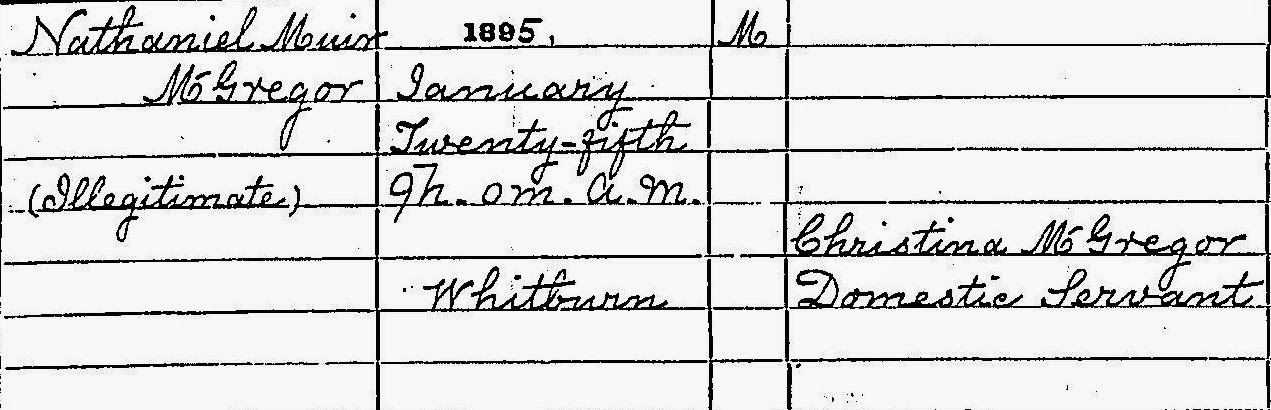 Nathaniel Muir 1895, M
McGregor January
Twenty-fifth
(Illegitimate) 9h. 0m. A.M.
Christina McGregor
Whitburn Domestic Servant